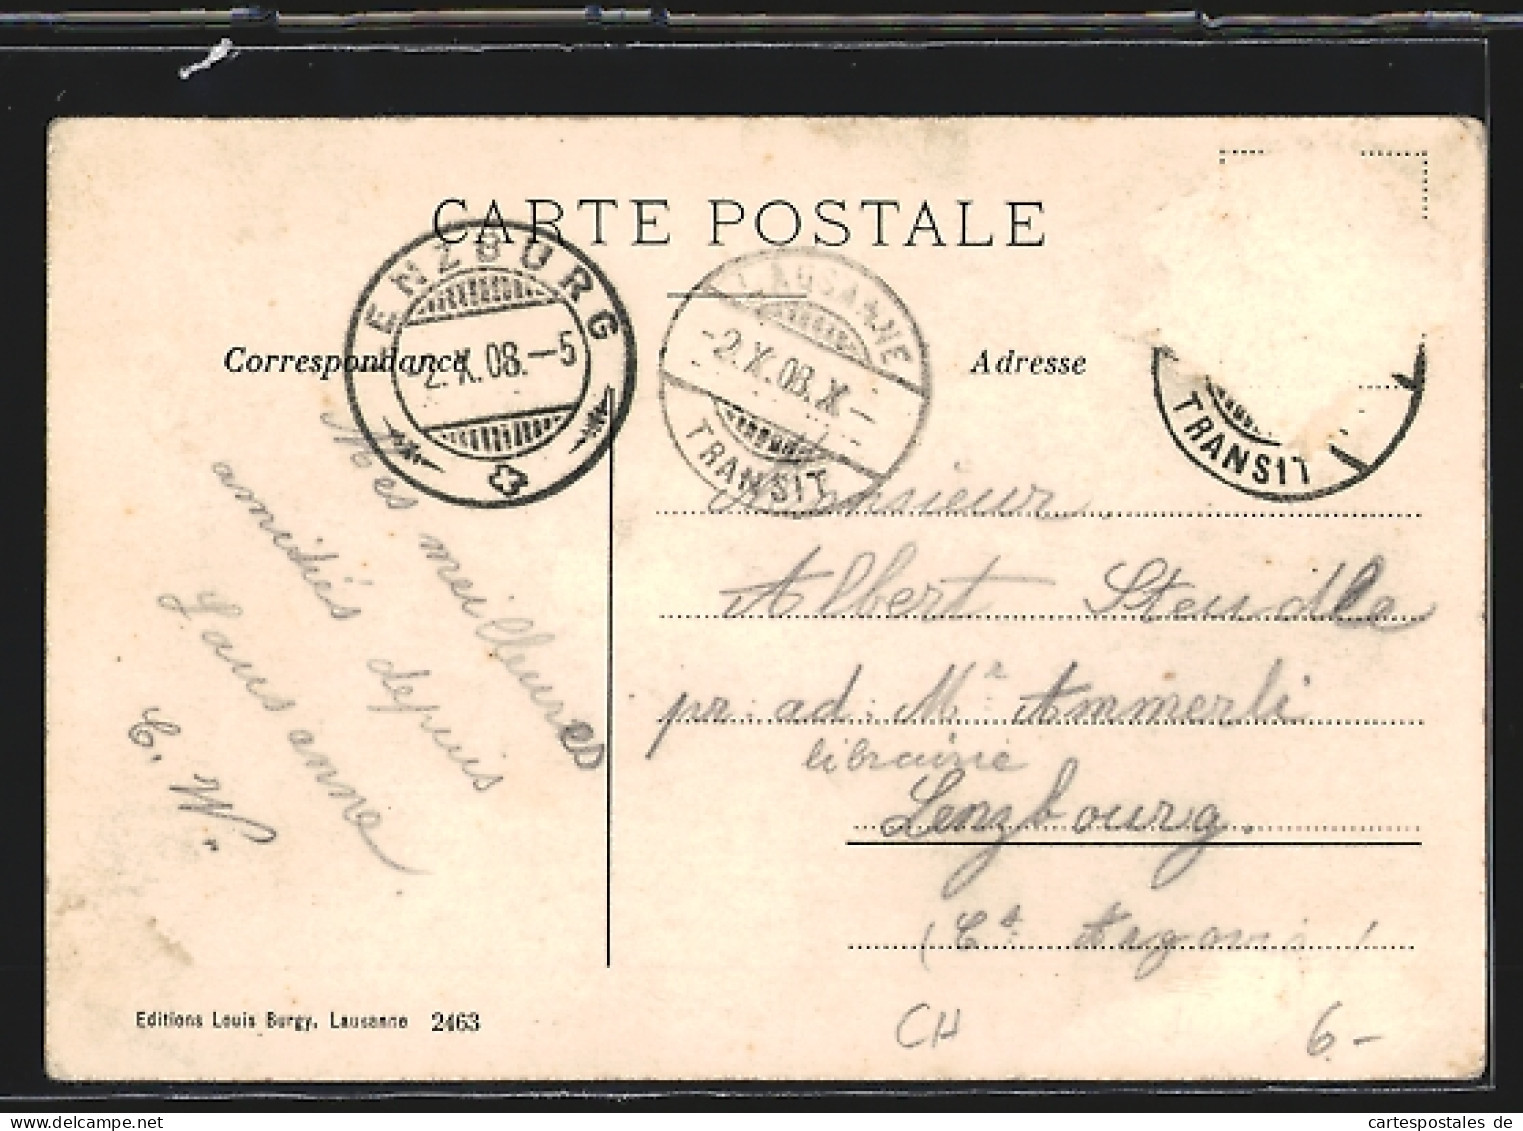 CARTE POSTALE
LENZBURG
-2.X.08.-5
LAUSANNE
-2.X.08.X-
TRANSIT
TRANSIT
Correspondance
Adresse
Mes meilleures
amitiés depuis
Lausanne
C. W.
Monsieur
Albert Steudle
pr. ad. Mr Ammerli
librairie
Lenzbourg.
(Ct. Argovie)
Editions Louis Burgy, Lausanne 2463
CH
6.-
cartespostales de